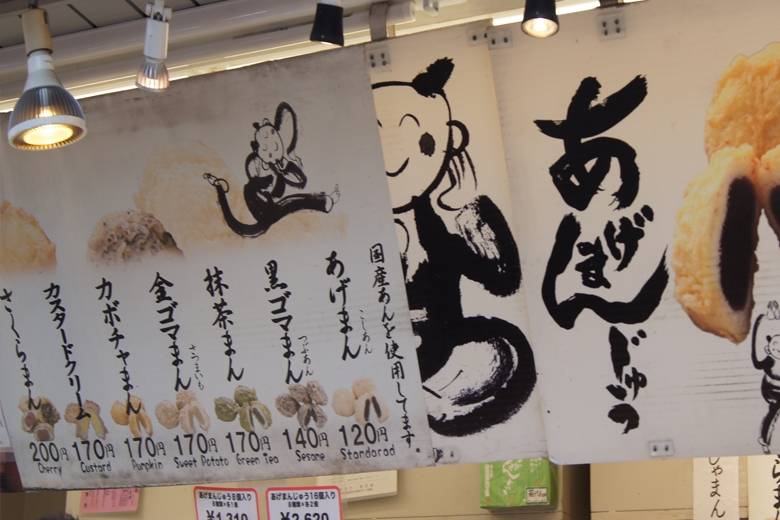 あげまんじゅう
国産あんを使用してます。
あげまん
こしあん
120円
Standarad
黒ゴマまん
つぶあん
140円
Sesame
抹茶まん
170円
Green Tea
金ゴマまん
さつまいも
170円
Sweet Potato
カボチャまん
170円
Pumpkin
カスタードクリーム
170円
Custard
さくらまん
200円
Cherry
あげまんじゅう8個入り
8種類×各1個
¥1,310
あげまんじゅう16個入り
8種類×各2個
¥2,620
じゃまん